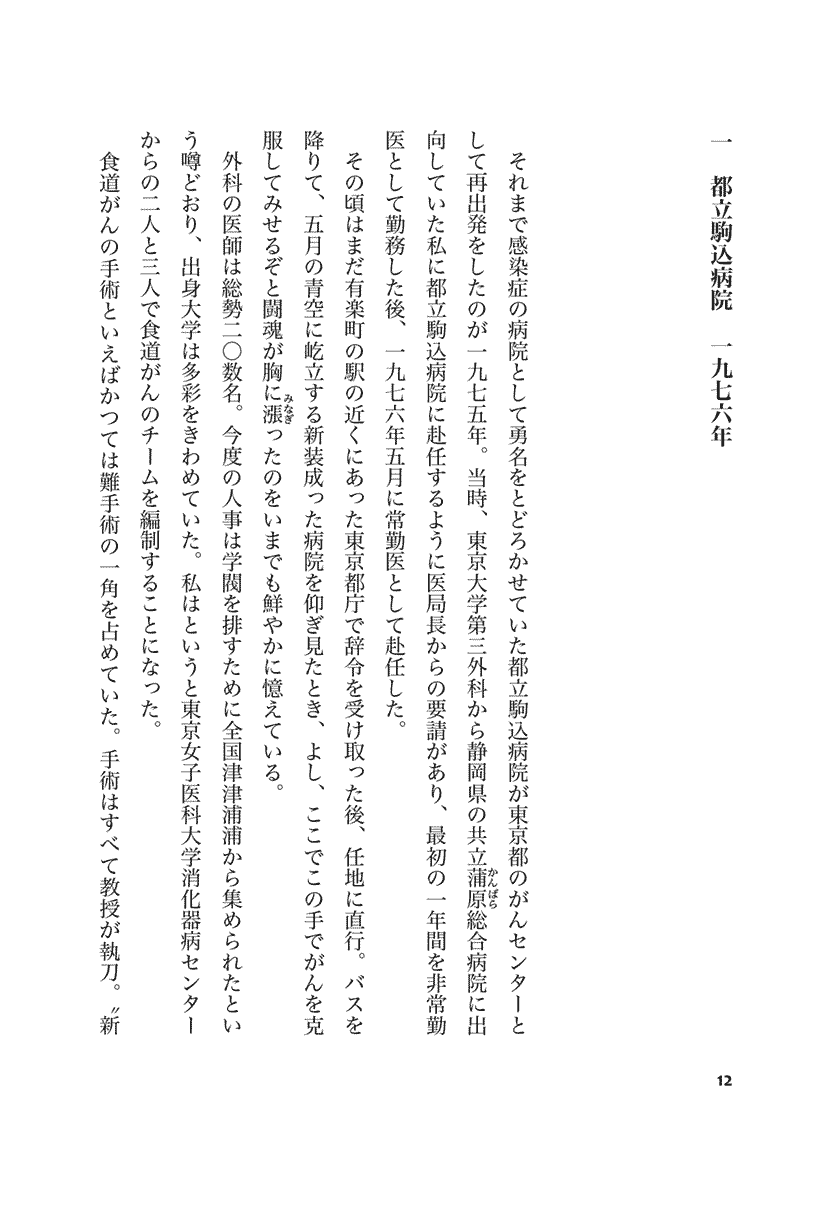 一　都立駒込病院　一九七六年
　それまで感染症の病院として勇名をとどろかせていた都立駒込病院が東京都のがんセンターと
して再出発をしたのが一九七五年。当時、東京大学第三外科から静岡県の共立蒲原総合病院に出
かんばら
向していた私に都立駒込病院に赴任するように医局長からの要請があり、最初の一年間を非常勤
医として勤務した後、一九七六年五月に常勤医として赴任した。
　その頃はまだ有楽町の駅の近くにあった東京都庁で辞令を受け取った後、任地に直行。バスを
降りて、五月の青空に屹立する新装成った病院を仰ぎ見たとき、よし、ここでこの手でがんを克
服してみせるぞと闘魂が胸に漲ったのをいまでも鮮やかに憶えている。
みなぎ
　外科の医師は総勢二〇数名。今度の人事は学閥を排すために全国津津浦浦から集められたとい
う噂どおり、出身大学は多彩をきわめていた。私はというと東京女子医科大学消化器病センター
からの二人と三人で食道がんのチームを編制することになった。
　食道がんの手術といえばかつては難手術の一角を占めていた。手術はすべて教授が執刀。〝新
12